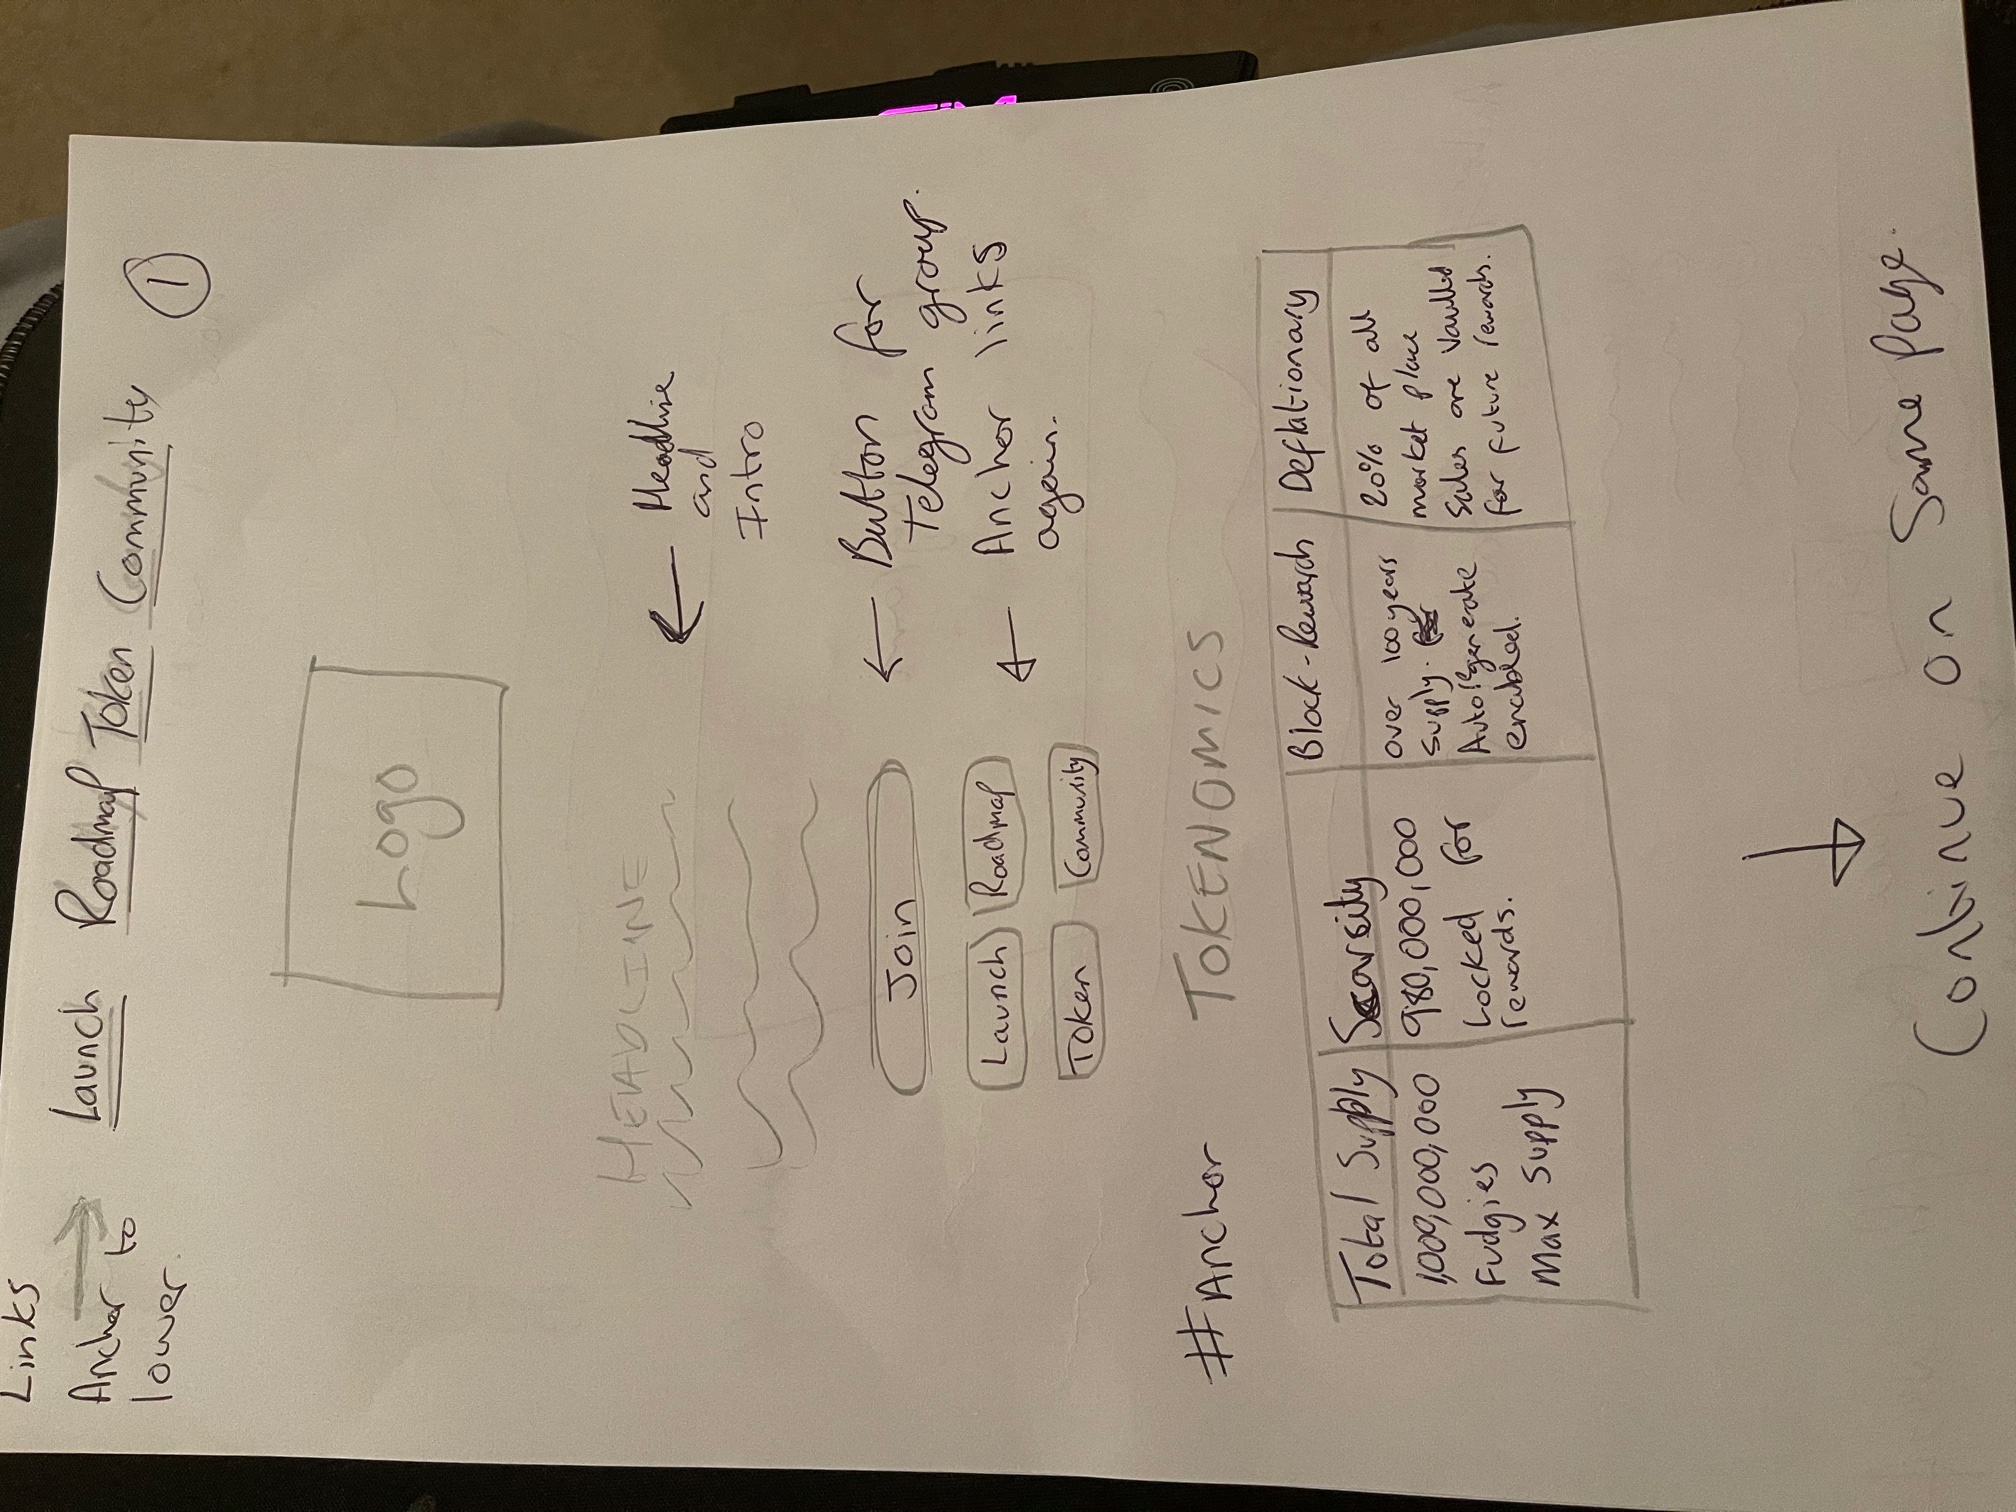 Links
Anchor to
lower.
Launch Roadmap Token Community
1
Logo
HEADLINE
Headline
and
Intro
Join
Button for
Telegram group.
Launch Roadmap
Token Community
Anchor links
again.
#Anchor
TOKENOMICS
Total Supply
1,000,000,000
Fudgies
Max Supply
Scarsity
980,000,000
Locked for
rewards.
Block-Rewards
over 100 years
supply.
Autoregenerate
enabled.
Deflationary
20% of all
market place
sales are Vaulted
for future rewards.
Continue on Same page.